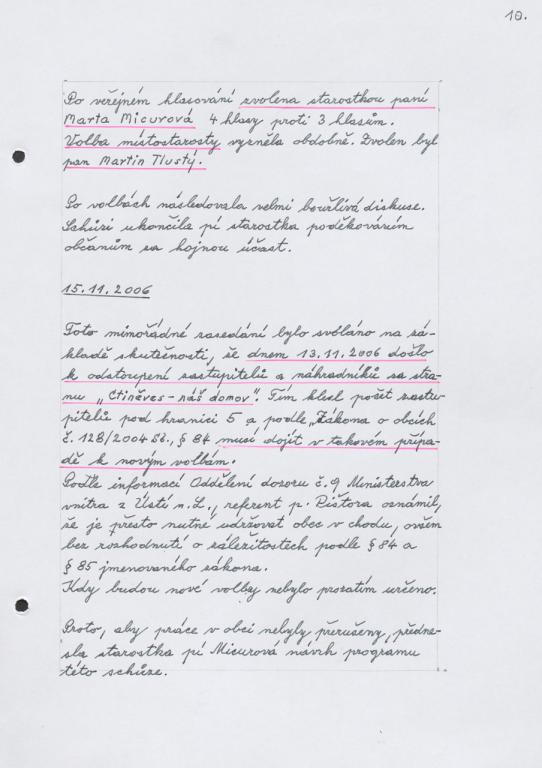 10.
Po veřejném hlasování zvolena starostkou paní
Marta Micurová 4 hlasy proti 3 hlasům.
Volba místostarosty vyzněla obdobně. Zvolen byl
pan Martin Tlustý.
Po volbách následovala velmi bouřlivá diskuse.
Schůzi ukončila pí starostka poděkováním
občanům za hojnou účast.
15.11.2006
Toto mimořádné zasedání bylo svoláno na zá-
kladě skutečnosti, že dnem 13.11.2006 došlo
k odstoupení zastupitelů a náhradníků za stra-
nu „Ctiněves - náš domov". Tím klesl počet zastu-
pitelů pod hranici 5 a podle „Zákona o obcích
č. 128/2004 Sb., § 84 musí dojít v takovém přípa-
dě k novým volbám.
Podle informací Oddělení dozoru č. 9 Ministerstva
vnitra z Ústí n.L., referent p. Pištora oznámil,
že je přesto nutné udržovat obec v chodu, ovšem
bez rozhodnutí o záležitostech podle § 84 a
§ 85 jmenovaného zákona.
Kdy budou nové volby nebylo prozatím určeno.
Proto, aby práce v obci nebyly přerušeny, předne-
sla starostka pí Micurová návrh programu
této schůze.